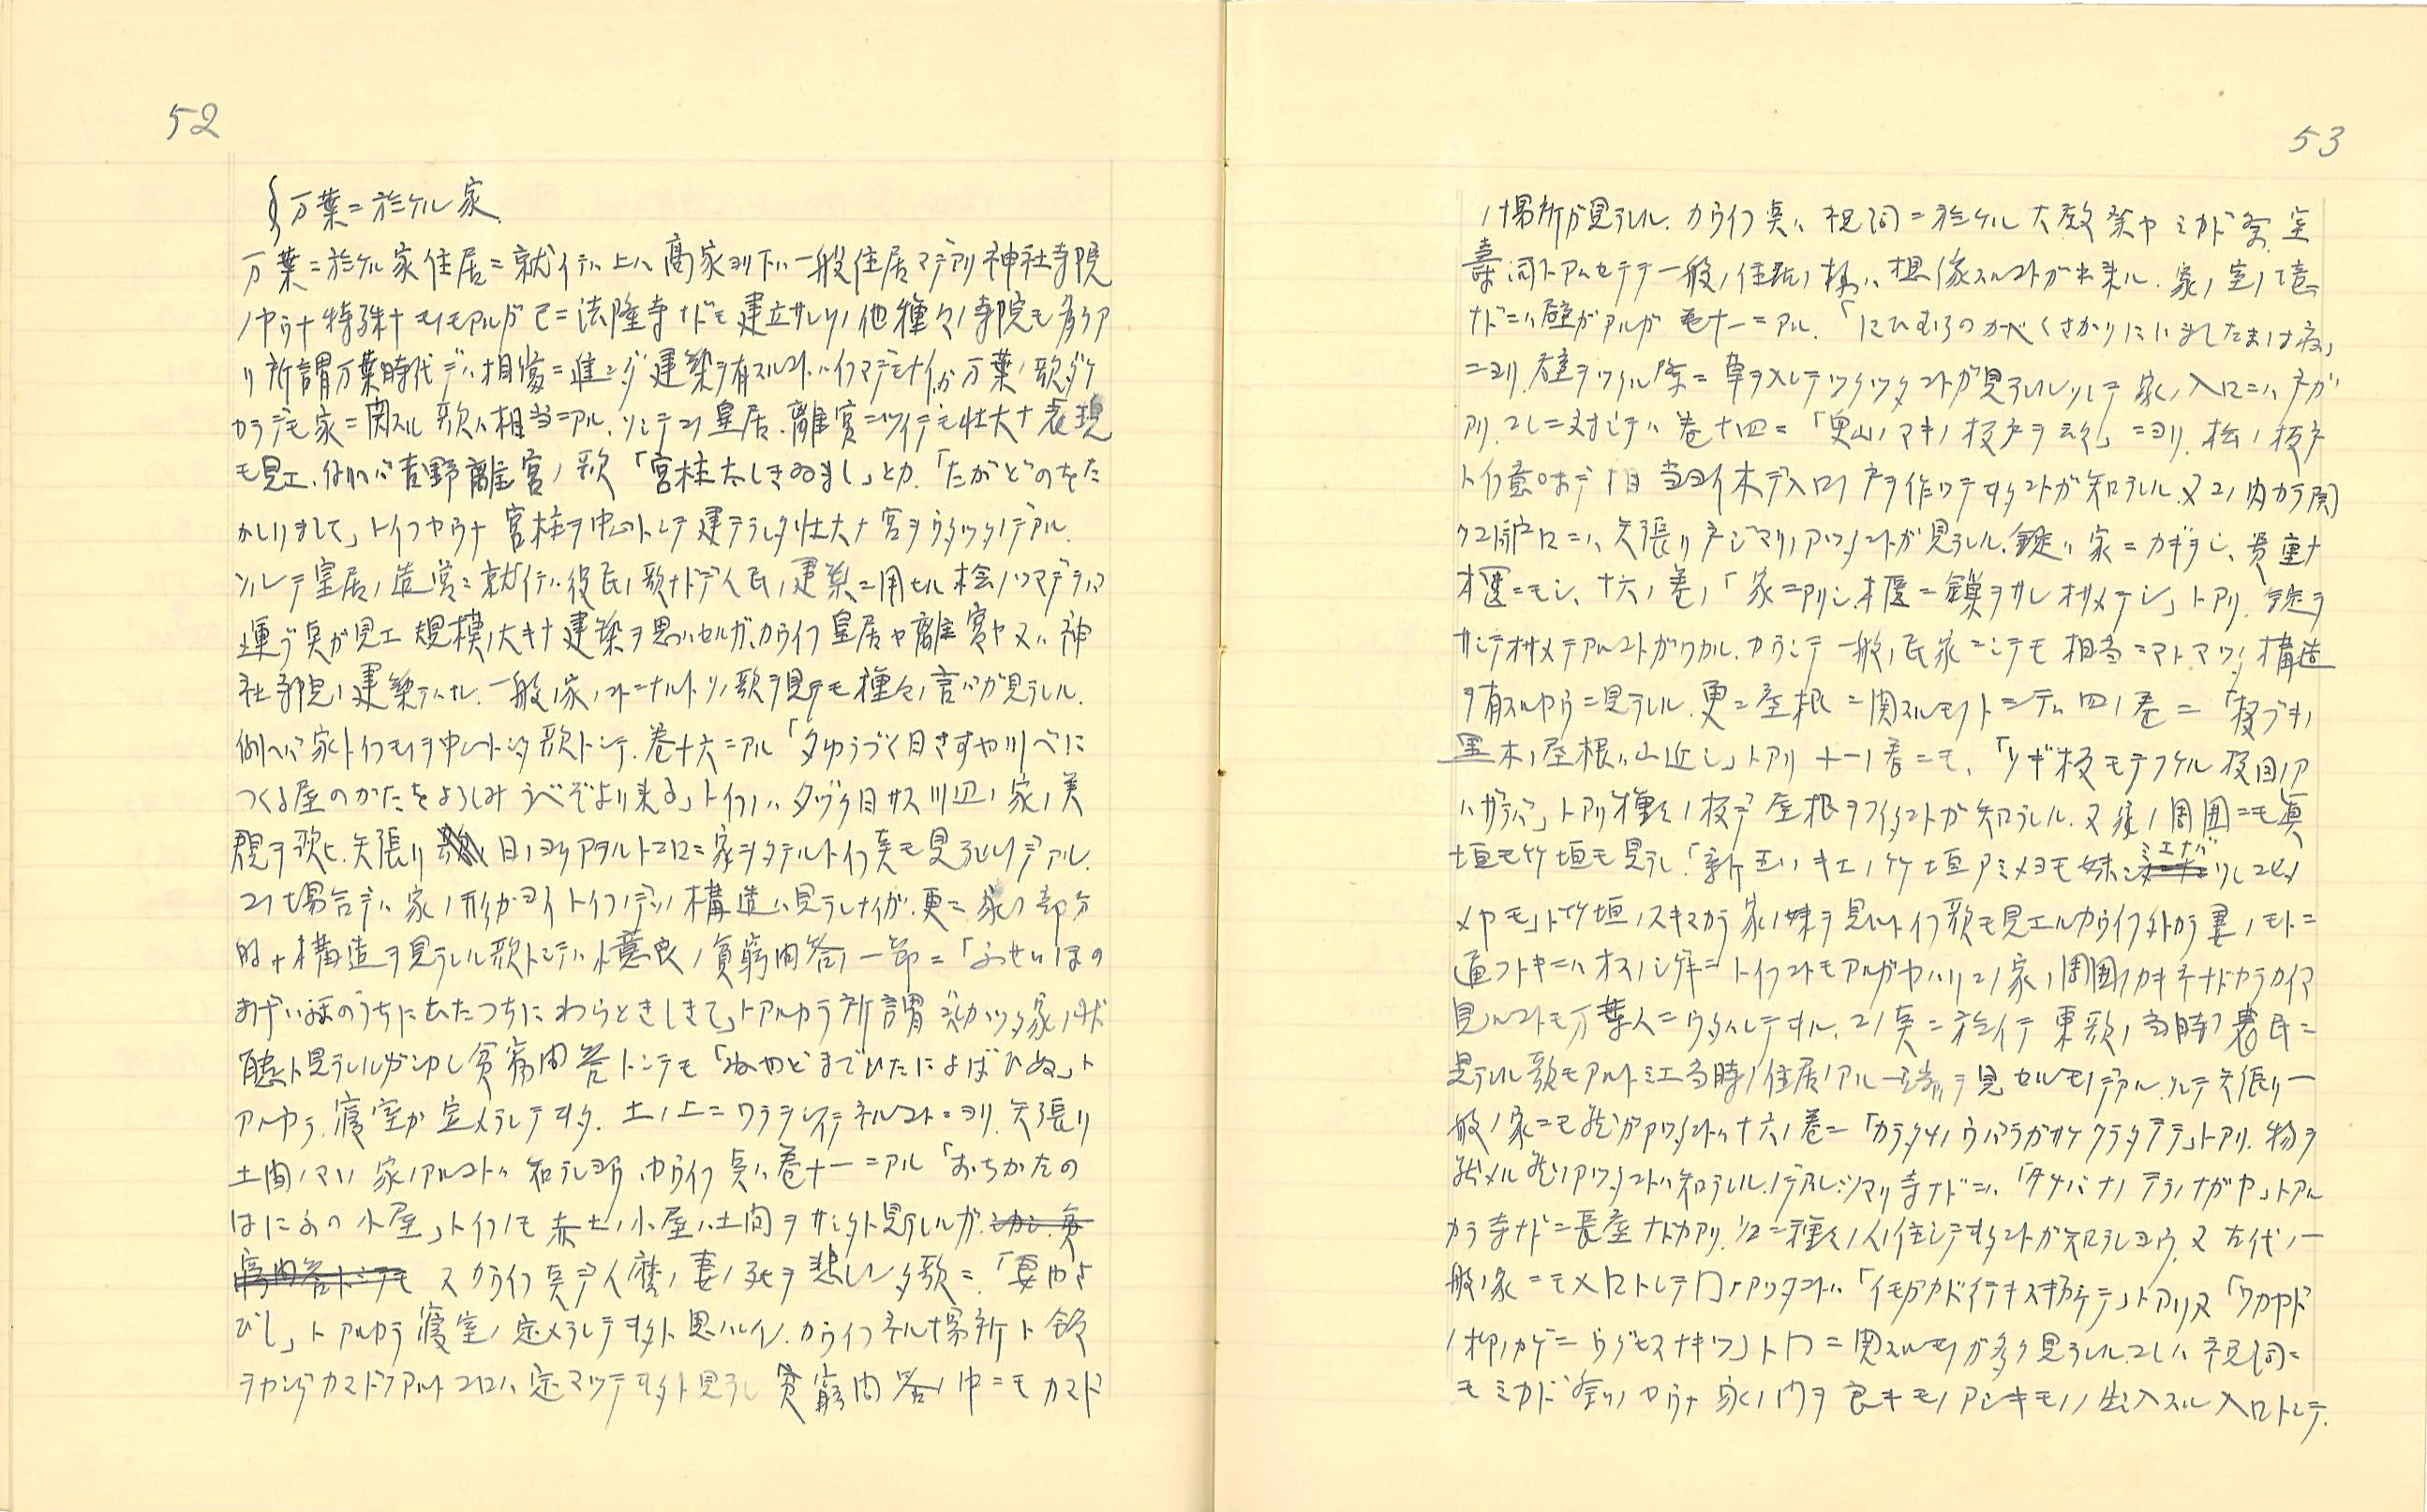 52
§万葉ニ於ケル家
万葉ニ於ケル家住居ニ就イテハ上ハ高家ヨリ下ハ一般住居マデアリ神社寺院
ノヤウナ特殊ナモノモアルガ已ニ法隆寺ナドモ建立サレソノ他種々ノ寺院モ多クア
リ所謂万葉時代デハ相当ニ進ンダ建築ヲ有スルコトハイフマデモナイガ万葉ノ歌ダケ
カラデモ家ニ関スル歌ハ相当ニアル、ソシテコノ皇居、離宮ニツイテモ壮大ナ表現
モ見エ、例ヘバ吉野離宮ノ歌「宮柱太しきゐまし」とか、「たかどのをた
かしりまして」トイフヤウナ宮柱ヲ中心トシテ建テラレタ壮大ナ宮ヲウタツタノデアル.
ソレデ皇居ノ造営ニ就イテハ役民ノ歌ナドデ人民ノ建築ニ用セル桧ノツマデヲ
運ブ点が見エ規模ノ大キナ建築ヲ思ハセルガ、カウイフ皇居ヤ離宮ヤ又ハ神
社寺院ノ建築デハナル、一般ノ家ノコトニナルトソノ歌ヲ見テモ種々ノ言バガ見ラレル.
例ヘバ家トイフモノヲ中心トシタ歌トシテ、巻十六ニアル「夕ゆうづく日さすや川べに
つくる屋のかたをよろしみうべぞより来る」トイフノハ夕ヅク日サス川辺ノ家ノ美
観ヲ歌ヒ、矢張リ日ノヨクアタルトコロニ家ヲタテルトイフ点モ見ラレルノデアル.
コノ場合デハ家ノ形ガヨイトイフノデソノ構造ハ見ラレナイガ、更ニ家ノ部分
的ナ構造ヲ見ラレル歌トシテハ憶良ノ貧窮問答ノ一節ニ「ふせいほの
まげいほのうちにひたつちにわらときしきて」トアルカラ所謂ヒクカツタ家ノ状
態ト見ラレルガシカシ貧窮問答トシテモ「ねやどまでひたによばひぬ」ト
アルカラ、寝室ガ定メラレテヲリ、土ノ上ニワラヲシイテネルコトニヨリ、矢張リ
土間ノマヽノ家ノアルコトハ知ラレヨウ、カウイフ点ハ巻十一ニアル「おちかたの
はにふの小屋」トイフノモ赤土ノ小屋ハ土間ヲサシタト見ラレルガ、シカシ貧
窮問答トシテモ又カウイフ点デ人麿ノ妻ノ死ヲ悲シンダ歌ニ「妻やさ
びし」トアルカラ寝室ノ定メラレテヲツタト思ハレル、カウイフネル場所ト飯
ヲカシグカマドノアルトコロハ定マツテヲツタト見ラレ貧窮問答ノ中ニモカマド
53
ノ場所ガ見ラレル、カウイフ点ハ祝詞ニ於ケル大殿祭ヤミカド祭、室
壽詞トアハセテ一般ノ住居ノ様ハ想像スルコトガ出来ル、家ノ室ノ境
ナドニハ壁ガアルガ巻十一ニアル、「にひむろのかべくさかりにいましたまはね」
ニヨリ、壁ヲツクル際ニ草ヲ入レテツクツタコトガ見ラレ、ソシテ家ノ入口ニハ戸ガ
アリ、コレニ対シテハ巻十四ニ「奥山ノマキノ板戸ヲ云々」ニヨリ、桧ノ板戸
トイフ意味デ相当ヨイ木デ入口ノ戸ヲ作ツテヲツタコトガ知ラレル、又コノ内カラ開
ク口ニハ矢張リ戸ジマリノアツタコトガ見ラレル、鍵ハ家ニカギラレ、貴重ナ
櫃ニモシ、十六ノ巻ノ「家ニアリシ櫃ニ鏁ヲサシオサメテシ」トアリ、鍵ヲ
サシテオサメテアルコトガワカル、カクシテ一般ノ民家ニシテモ相当ニマトマツタ構造
ヲ有スルヤウニ見ラレル、更ニ屋根ニ関スルモノトシテハ四ノ巻ニ「板ブキノ
黒木ノ屋根ハ山近し」トアリ十一ノ巻ニモ、「ソギ板モテフケル板目ノア
ハザラバ」トアリ種々ノ板デ屋根ヲフイタコトガ知ラレル、又家ノ周囲ニモ真
垣モ竹垣モ見ラレ「新玉ノキエノ竹垣アミメヨモ妹シミエナバワレコヒメ
メヤモ」ト竹垣ノスキマカラ家ノ妹ヲ見ルトイフ歌モ見エル、カウイフ外カラ妻ノモトニ
通フトキニハオスノシ庭ニトイフコトモアルガヤハリコノ家ノ周囲ノカキネナドカラカイマ
見ルコトモ万葉人ニウタハレテヰル、コノ点ニ於イテ東歌ノ当時ノ農民ニ
見ラレル歌モアルト云エ当時ノ住居ノアル一端ヲ見セルモノデアル、ソシテ矢張リ一
般ノ家ニモ蔵ガアツタコトハ十六ノ巻ニ「カラタチノウバラカリソケクラタテム」トアリ、物ヲ
蔵メル蔵ノアツタコトハ知ラレルノデアル、ツマリ寺ナドニハ、「タチバナノテラノナガヤ」トアル
カラ寺ナドニ長屋ナドガアリ、ソコニ種々ノ人ノ住シテヲツタコトガ知ラレヨウ、又古代ノ一
般ノ家ニモ入口トシテ門ノアツタコトハ「イモガカドイデイキスギカネテ」トアリ又「ワガヤド
ノ柳ノカゲニウグヒスナキツ」ト門ニ関スルモノガ多ク見ラレル、コレハ祝詞ニ
モミカド祭ノヤウナ家ノ内ヲ良キモノアシキモノノ出入スル入口トシテ.